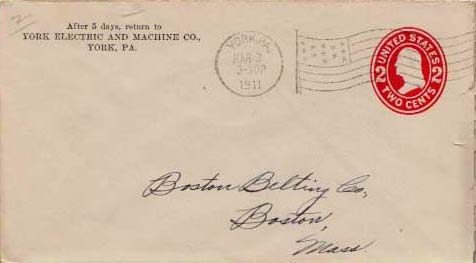 2
After 5 days, return to
YORK ELECTRIC AND MACHINE CO.,
YORK, PA.
YORK, PA.
MAR 3
3-30P
1911
UNITED STATES
2 2
TWO CENTS
Boston Belting Co,
Boston,
Mass.